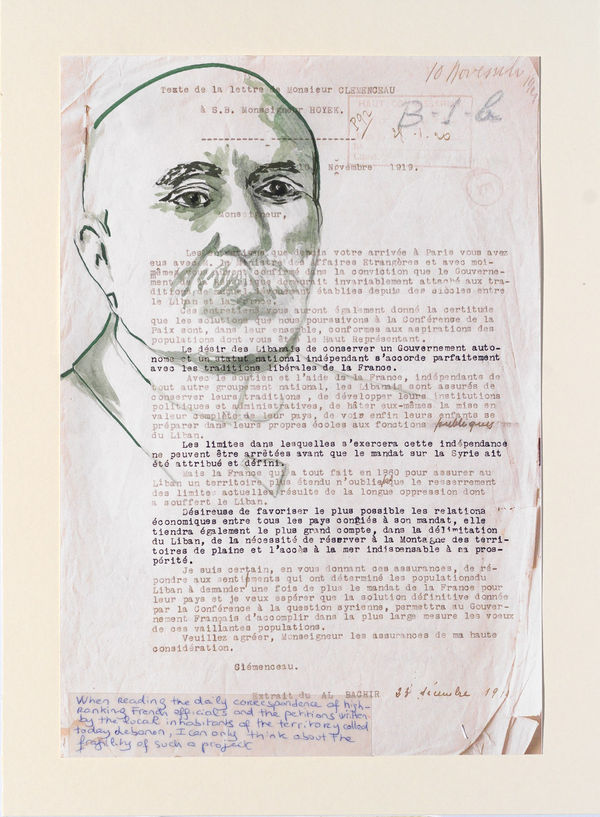 10 Novembre 1919
Texte de la lettre de Monsieur CLEMENCEAU
à S.B. Monseigneur HOYEK.
B-1-b
Novembre 1919.
Monseigneur,
Les que depuis votre arrivée à Paris vous avez
eus avec le Ministre des Affaires Etrangères et avec moi-
même dans la conviction que le Gouverne-
ment invariablement attaché aux tra-
ditions établies depuis des siècles entre
le Liban et la France.
également donné la certitude
que les solutions que nous poursuivons à la Conférence de la
Paix sont, dans leur ensemble, conformes aux aspirations des
populations dont vous le Haut Représentant.
Le désir des Libanais de conserver un Gouvernement auto-
nome et un statut national indépendant s'accorde parfaitement
avec les traditions libérales de la France.
Avec le soutien et l'aide de la France, indépendants de
tout autre groupement national, les Libanais sont assurés de
conserver leurs traditions , de développer leurs institutions
politiques et administratives, de hâter eux-mêmes la mise en
valeur complète de leur pays, de voir enfin leurs enfants se
préparer dans leurs propres écoles aux fonctions publiques
du Liban.
Les limites dans lesquelles s'exercera cette indépendance
ne peuvent être arrêtées avant que le mandat sur la Syrie ait
été attribué et défini.
Mais la France qui a tout fait en 1860 pour assurer au
Liban un territoire plus étendu n'oublie que le resserrement
des limites actuelles résulte de la longue oppression dont
a souffert le Liban.
Désireuse de favoriser le plus possible les relations
économiques entre tous les pays confiés à son mandat, elle
tiendra également le plus grand compte, dans la délimitation
du Liban, de la nécessité de réserver à la Montagne des terri-
toires de plaine et l'accès à la mer indispensable à sa pros-
périté.
Je suis certain, en vous donnant ces assurances, de ré-
pondre aux sentiments qui ont déterminé les populationsdu
Liban à demander une fois de plus le mandat de la France pour
leur pays et je veux espérer que la solution définitive donnée
par la Conférence à la question syrienne, permettra au Gouver-
nement Français d'accomplir dans la plus large mesure les voeux
de ces vaillantes populations.
Veuillez agréer, Monseigneur les assurances de ma haute
considération.
Clémenceau.
Extrait du AL BACHIR décembre
When reading the daily correspondence of high-
ranking French officials and the petitions written
by the local inhabitants of the territory called
today Lebanon, I can only think about the
fragility of such a project